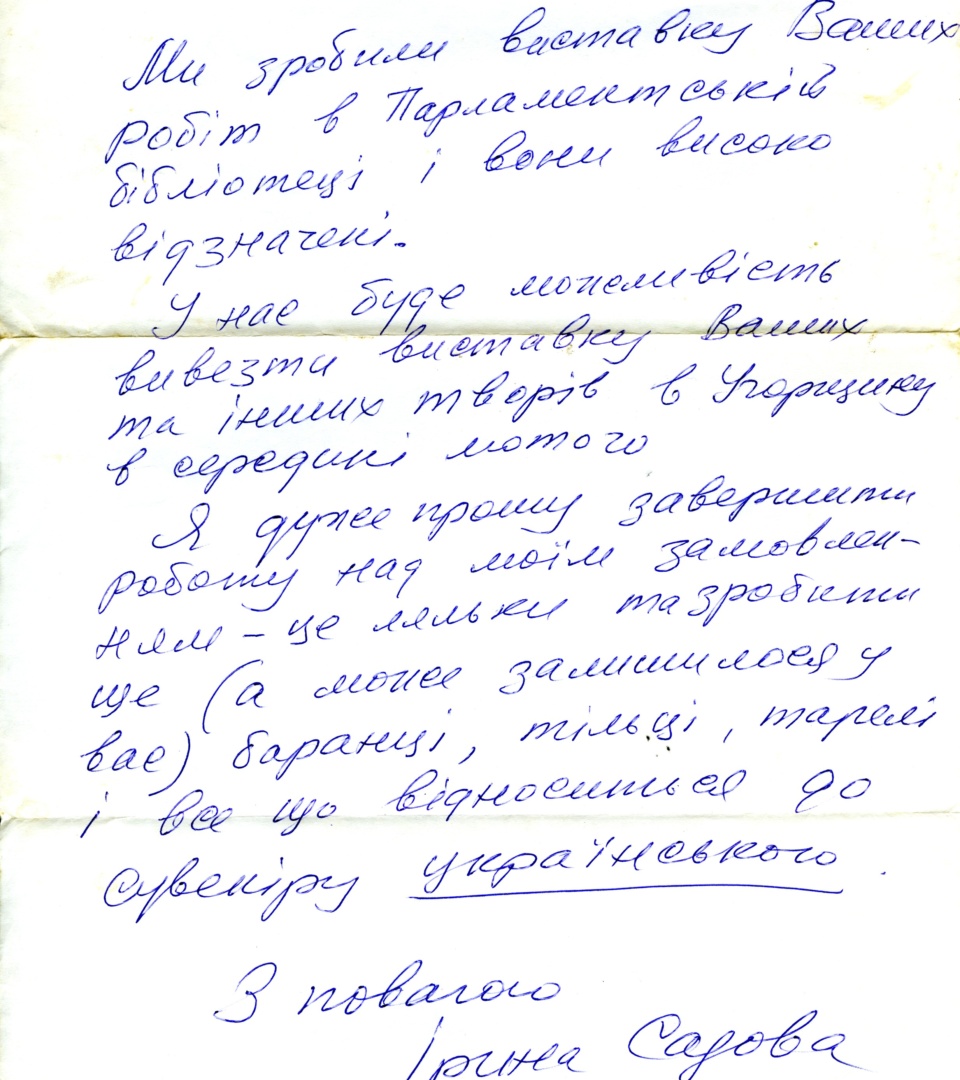 Ми зробили виставку Ваших
робіт в Парламентській
бібліотеці і вони високо
відзначені.
У нас буде можливість
вивезти виставку Ваших
та інших творів в Угорщину
в середині лютого
Я дуже прошу завершити
роботу над моїм замовлен-
ням – це ляльки та зробити
ще (а може залишилося у
вас) баранці, тільці, тарелі
і все що відноситься до
сувеніру українського.
З повагою
Ірина Садова